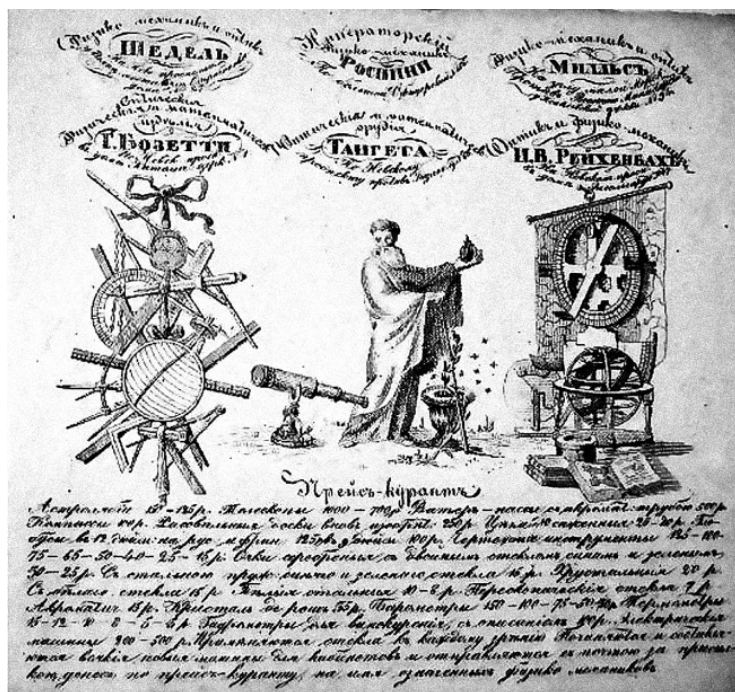 Физико механикъ и оптикъ
ШЕДЕЛЬ
Императорскій
Физико-механикъ
РОСПИНИ
Физико-механикъ и оптикъ
МИЛЛЬСЪ
Оптическія
Физическія и математическія
орудія
Г. БОЗЕТТИ
Оптическія и математич.
орудія
ТАНГЕТА
По Невскому
проспекту противъ
Оптикъ и физико-механикъ
И. В. РЕЙХЕНБАХЪ
На Невскомъ просп.
Прейсъ-курантъ
Астролябіи 150-125 р. Телескопы 1000-700 р. Ватеръ-пасы съ зрител. трубою 500 р.
Компасы 40 р. Рисовальныя доски вновь изобрѣт. 250 р. Цѣпи 10 саженныя 25-20 р.
въ 12 дюйм. на рус. и фран. 125 въ 9 дюйм. 100 р. Чертежные инструменты 125-100-
75-65-50-40-25-15 р. Очки серебреныя съ двойнымъ стекломъ синимъ и зеленымъ
30-25 р. Съ стальною пруж. синяго и зеленаго стекла 15 р. Хрустальныя 20 р.
Съ бѣлаго стекла 15 р. стальныя 10-8 р. стекла 7 р.
15 р. Кристалъ де рошъ 35 р. Барометры 150-100-75-50 р. Термометры
15-12-10-8-5 р. Гидрометры для винокуренія, съ описаніемъ 40 р. Электрическія
машины 200-500 р. Примѣняются стекла къ каждому зрѣнію. Починяются и составля-
ются всякія новыя машины для кабинетовъ и отправляются съ почтою за присыл-
кою денегъ по прейсъ-куранту, на имя означенныхъ физико механиковъ.